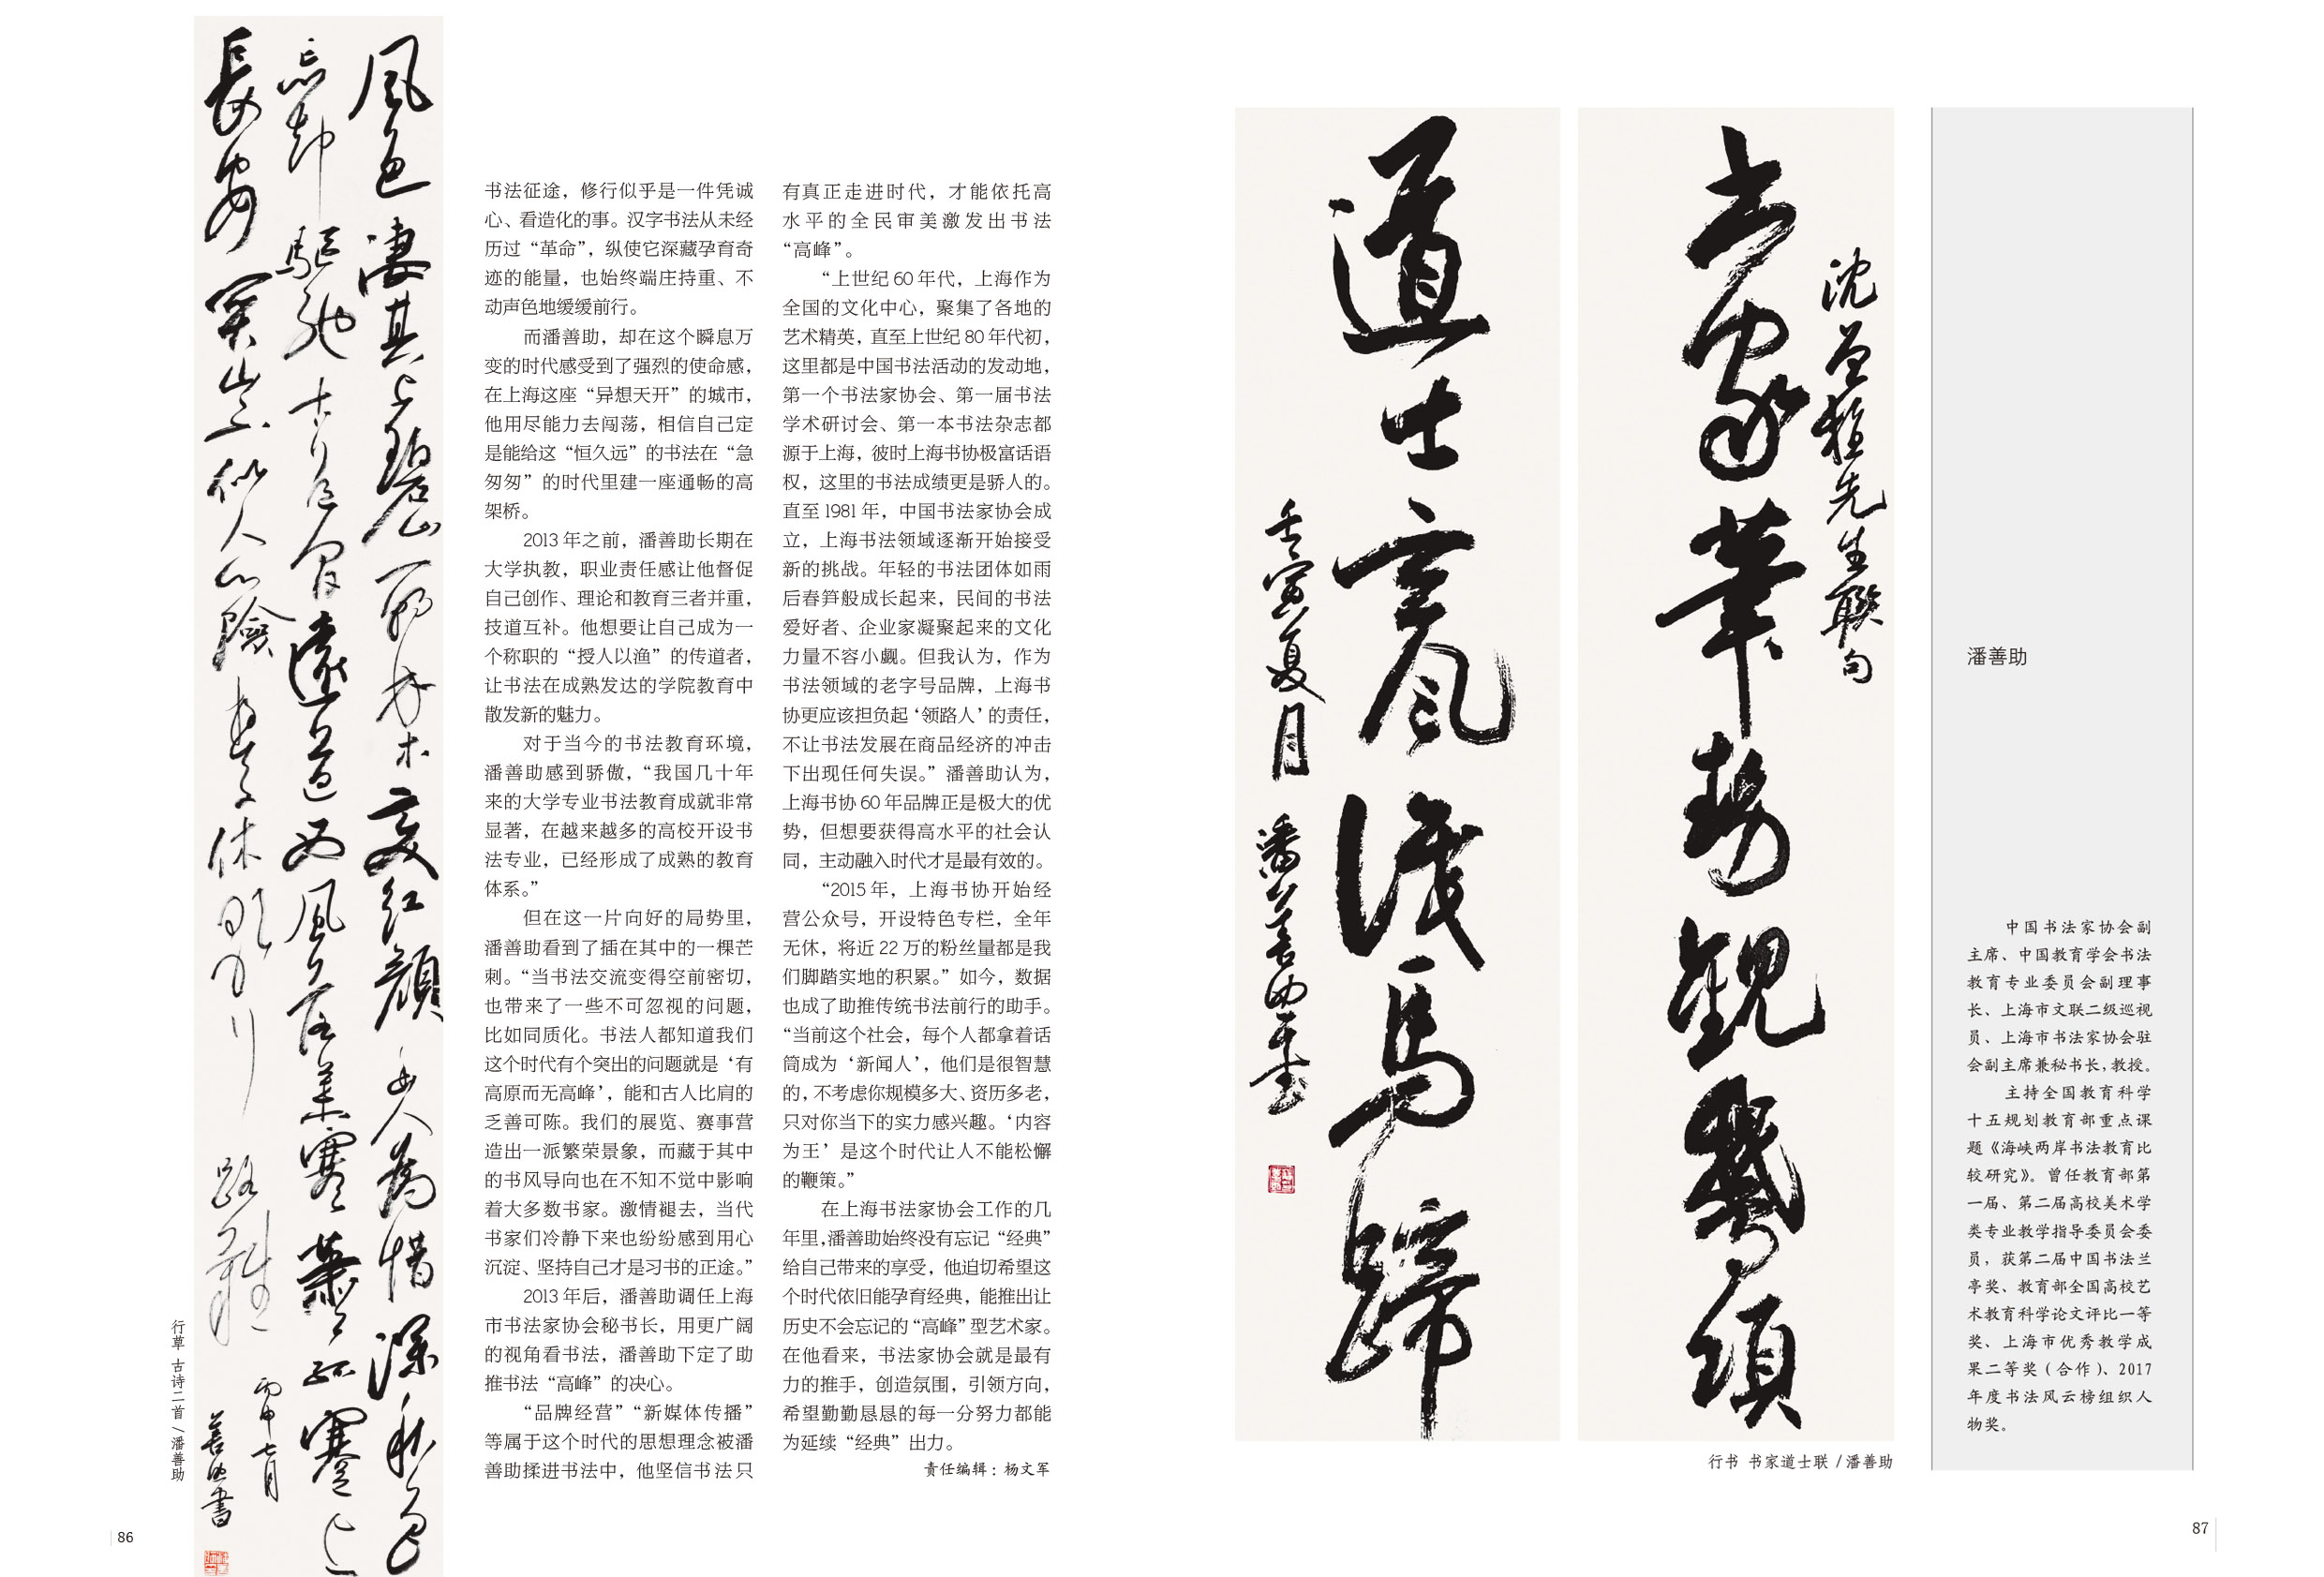 風色淒其上碧山 林木變红顏 人為惜深秋色
忘却驅馳古道間遠道西風落葉寒蕭蕭孤蹇上
長安關山 似人心險 子休歌行路難
丙申七月
善助書
行草 古诗二首 / 潘善助
书法征途，修行似乎是一件凭诚
心、看造化的事。汉字书法从未经
历过“革命”，纵使它深藏孕育奇
迹的能量，也始终端庄持重、不
动声色地缓缓前行。
而潘善助，却在这个瞬息万
变的时代感受到了强烈的使命感，
在上海这座“异想天开”的城市，
他用尽能力去闯荡，相信自己定
是能给这“恒久远”的书法在“急
匆匆”的时代里建一座通畅的高
架桥。
2013 年之前，潘善助长期在
大学执教，职业责任感让他督促
自己创作、理论和教育三者并重，
技道互补。他想要让自己成为一
个称职的“授人以渔”的传道者，
让书法在成熟发达的学院教育中
散发新的魅力。
对于当今的书法教育环境，
潘善助感到骄傲，“我国几十年
来的大学专业书法教育成就非常
显著，在越来越多的高校开设书
法专业，已经形成了成熟的教育
体系。”
但在这一片向好的局势里，
潘善助看到了插在其中的一棵芒
刺。“当书法交流变得空前密切，
也带来了一些不可忽视的问题，
比如同质化。书法人都知道我们
这个时代有个突出的问题就是‘有
高原而无高峰’，能和古人比肩的
乏善可陈。我们的展览、赛事营
造出一派繁荣景象，而藏于其中
的书风导向也在不知不觉中影响
着大多数书家。激情褪去，当代
书家们冷静下来也纷纷感到用心
沉淀、坚持自己才是习书的正途。”
2013 年后，潘善助调任上海
市书法家协会秘书长，用更广阔
的视角看书法，潘善助下定了助
推书法“高峰”的决心。
“品牌经营”“新媒体传播”
等属于这个时代的思想理念被潘
善助揉进书法中，他坚信书法只
有真正走进时代，才能依托高
水平的全民审美激发出书法
“高峰”。
“上世纪 60 年代，上海作为
全国的文化中心，聚集了各地的
艺术精英，直至上世纪 80 年代初，
这里都是中国书法活动的发动地，
第一个书法家协会、第一届书法
学术研讨会、第一本书法杂志都
源于上海，彼时上海书协极富话语
权，这里的书法成绩更是骄人的。
直至 1981 年，中国书法家协会成
立，上海书法领域逐渐开始接受
新的挑战。年轻的书法团体如雨
后春笋般成长起来，民间的书法
爱好者、企业家凝聚起来的文化
力量不容小觑。但我认为，作为
书法领域的老字号品牌，上海书
协更应该担负起‘领路人’的责任，
不让书法发展在商品经济的冲击
下出现任何失误。”潘善助认为，
上海书协 60 年品牌正是极大的优
势，但想要获得高水平的社会认
同，主动融入时代才是最有效的。
“2015 年，上海书协开始经
营公众号，开设特色专栏，全年
无休，将近 22 万的粉丝量都是我
们脚踏实地的积累。”如今，数据
也成了助推传统书法前行的助手。
“当前这个社会，每个人都拿着话
筒成为‘新闻人’，他们是很智慧
的，不考虑你规模多大、资历多老，
只对你当下的实力感兴趣。‘内容
为王’是这个时代让人不能松懈
的鞭策。”
在上海书法家协会工作的几
年里，潘善助始终没有忘记“经典”
给自己带来的享受，他迫切希望这
个时代依旧能孕育经典，能推出让
历史不会忘记的“高峰”型艺术家。
在他看来，书法家协会就是最有
力的推手，创造氛围，引领方向，
希望勤勤恳恳的每一分努力都能
为延续“经典”出力。
责任编辑：杨文军
86
沈曾植先生联句
书家筆势觀鵝項
道士 風 馬蹄
壬寅夏月 潘善助 書
行书 书家道士联 / 潘善助
潘善助
中国书法家协会副
主席、中国教育学会书法
教育专业委员会副理事
长、上海市文联二级巡视
员、上海市书法家协会驻
会副主席兼秘书长，教授。
主持全国教育科学
十五规划教育部重点课
题《海峡两岸书法教育比
较研究》。曾任教育部第
一届、第二届高校美术学
类专业教学指导委员会委
员，获第二届中国书法兰
亭奖、教育部全国高校艺
术教育科学论文评比一等
奖、上海市优秀教学成
果二等奖（合作）、2017
年度书法风云榜组织人
物奖。
87